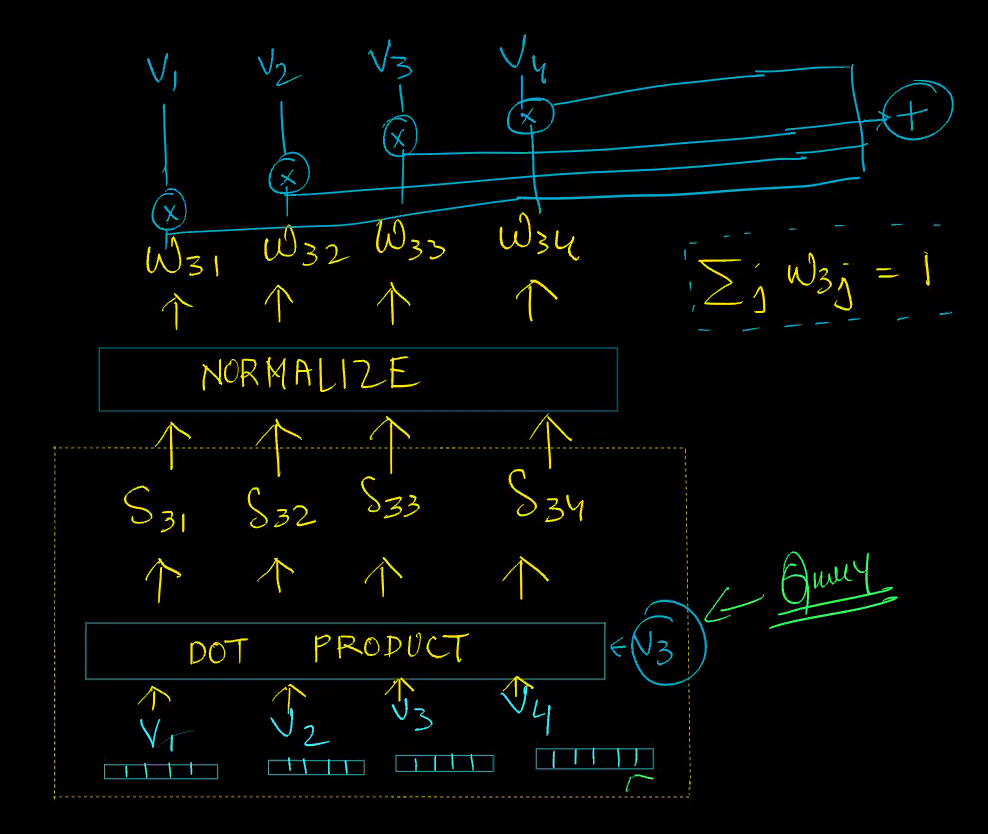 V1 V2 V3 V4
x x x x +
W31 W32 W33 W34
Σj W3j = 1
NORMALIZE
S31 S32 S33 S34
Query
DOT PRODUCT V3
V1 V2 V3 V4